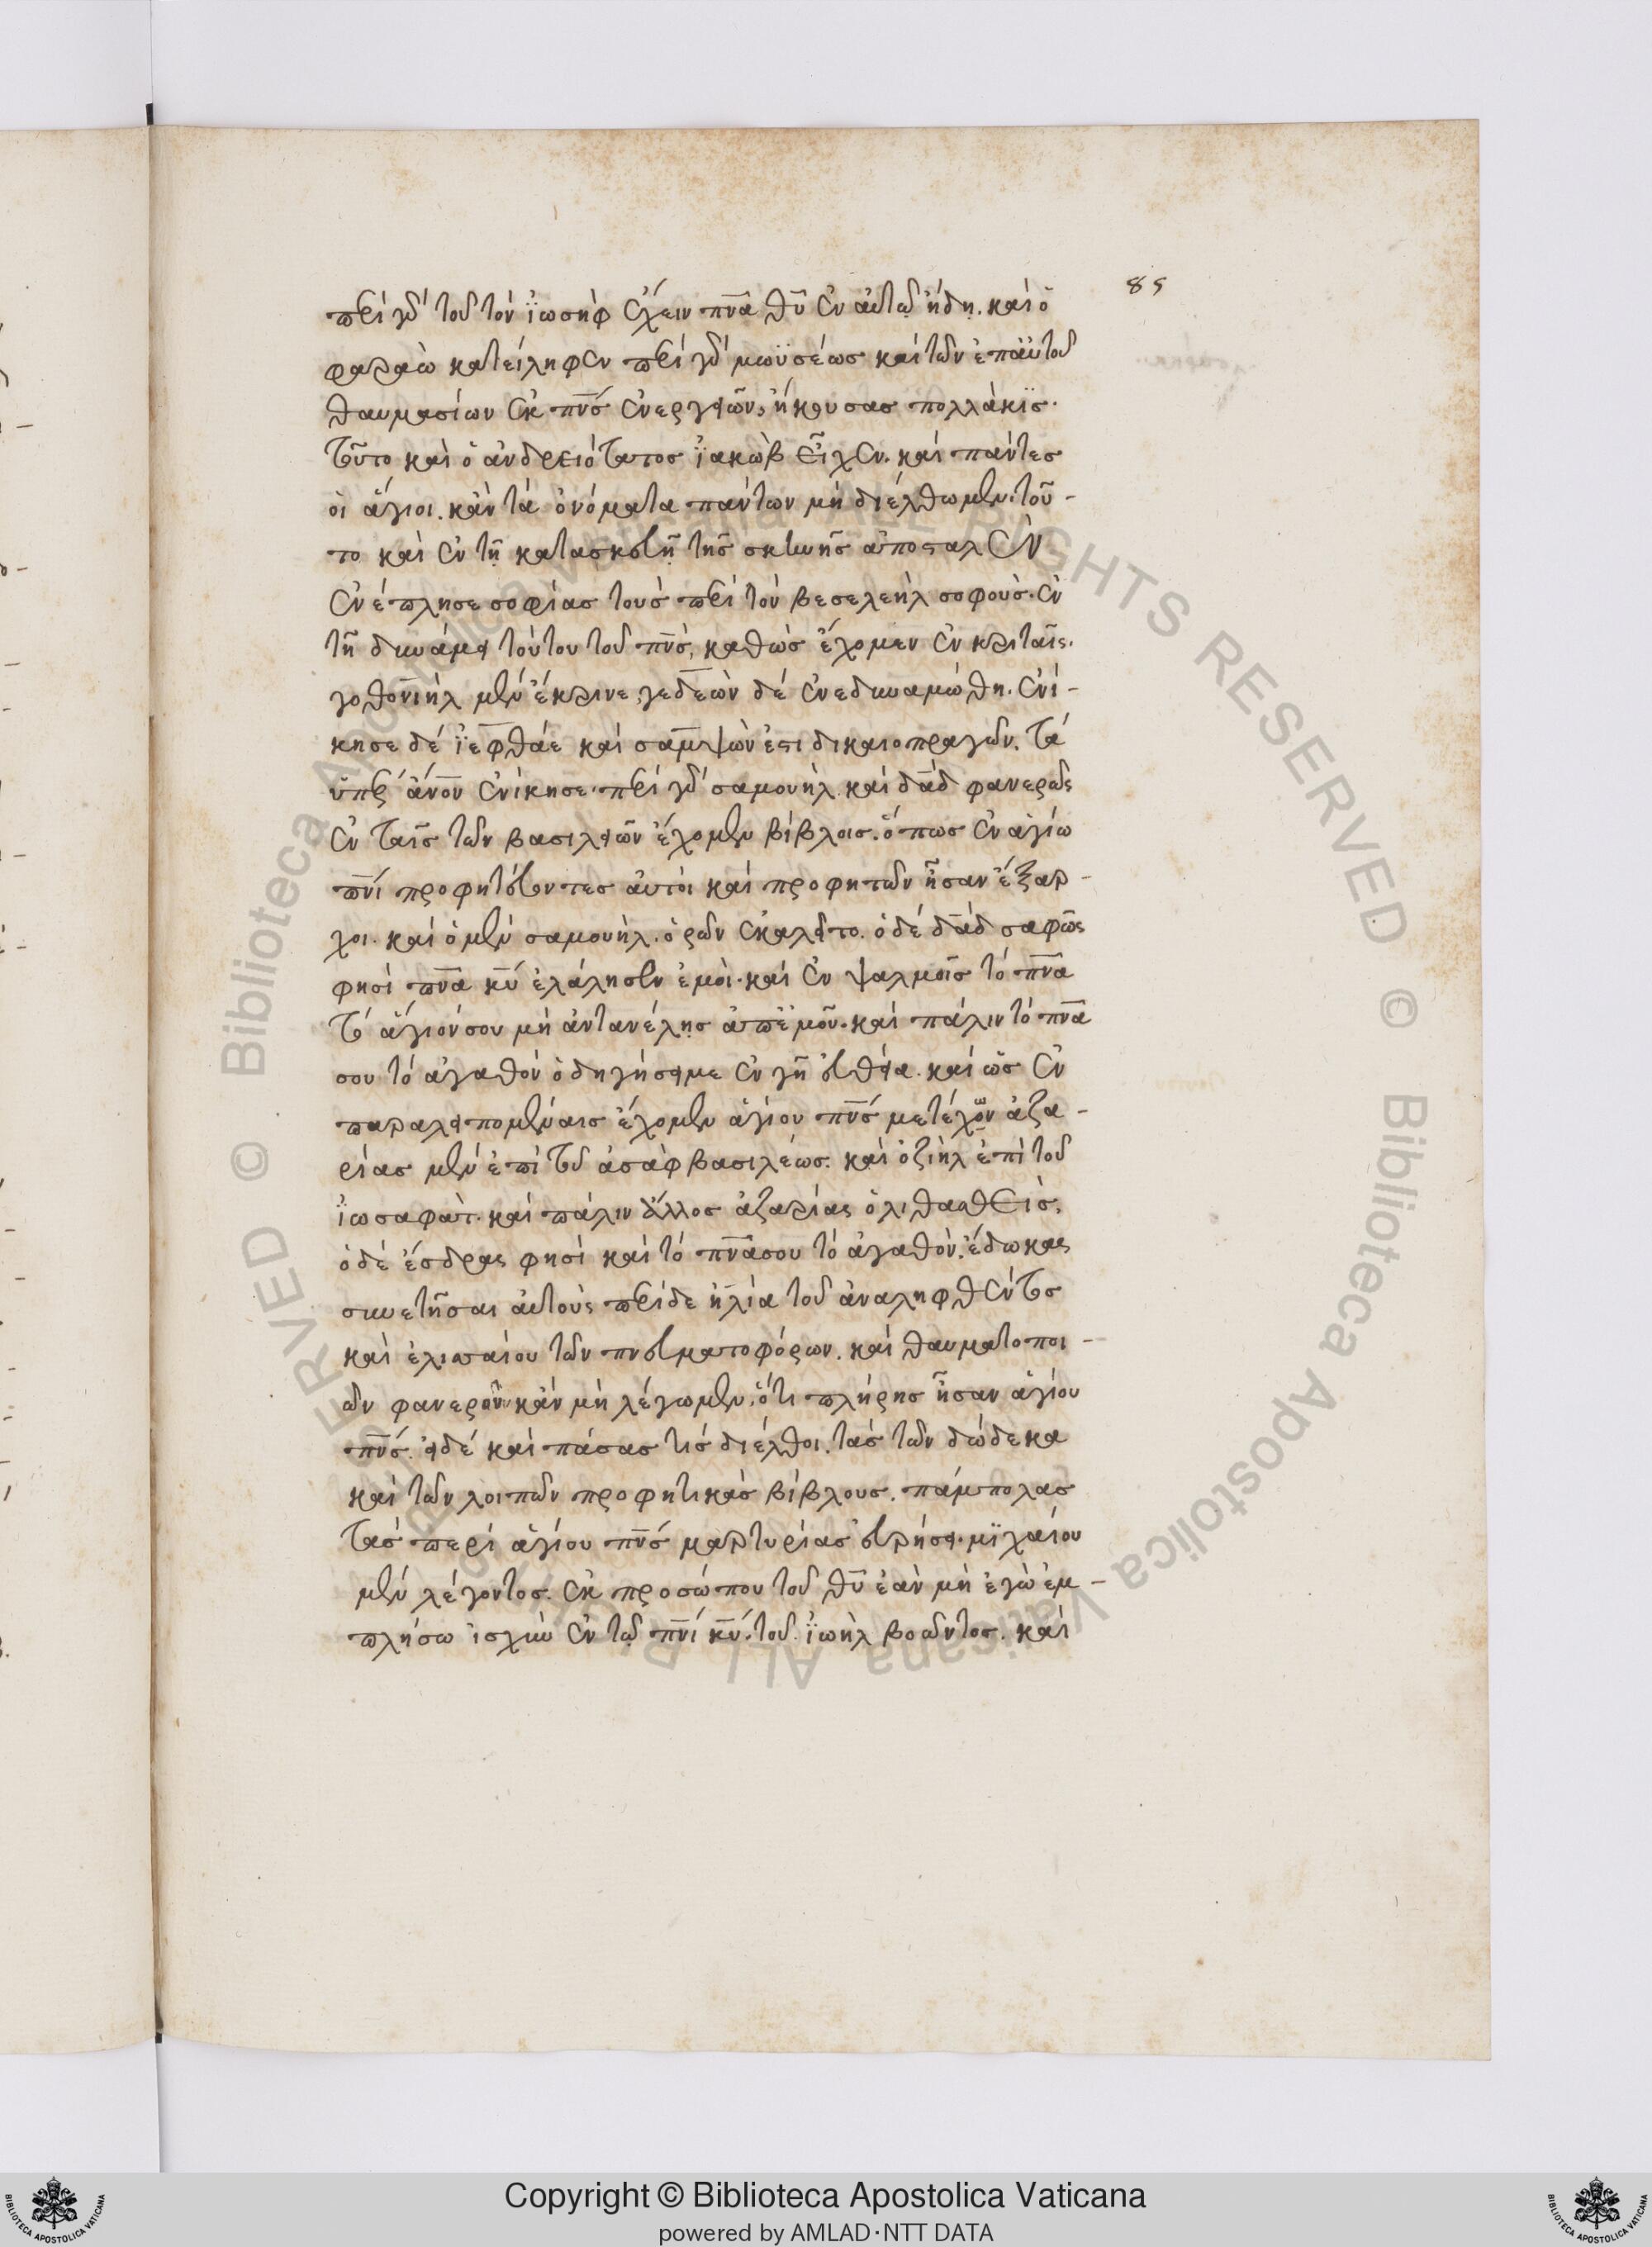 85
περὶ γὰρ τοῦ τὸν ἰωσὴφ ἔχειν πνᾶ θῦ ἐν αὐτῷ ἤδη. καὶ ὁ
φαραὼ κατείληφεν περὶ γὰρ μωϋσέως καὶ τῶν ἐπαὐτοῦ
θαυμασίων ἐκ πνς ἐνεργειῶν, ἤκουσας πολλάκις.
τοῦτο καὶ ὁ ἀνδρειότατος ἰακὼβ εἶχεν. καὶ πάντες
οἱ ἅγιοι. κἂν τὰ ὀνόματα πάντων μὴ διέλθωμεν. τοῦ-
το καὶ ἐν τῇ κατασκευῇ τῆς σκηνῆς ἀποσταλὲν
ἐνέπλησε σοφίας τοὺς περὶ τὸν βεσελεὴλ σοφούς. ἐν
τῇ δυνάμει τούτου τοῦ πνς, καθὼς ἔχομεν ἐν κριταῖς.
γοθονιὴλ μὲν ἔκρινε, γεδεὼν δὲ ἐνεδυναμώθη. ἐνί-
κησε δὲ ἰεφθάε καὶ σαμψὼν ἔτι δικαιοπραγῶν. τὰ
ὑπὲρ ἄνον ἐνίκησε. περὶ γὰρ σαμουὴλ καὶ δᾱδ φανερῶς
ἐν ταῖς τῶν βασιλειῶν ἔχομεν βίβλοις. ὅπως ἐν ἁγίω
πνι προφητεύοντες αὐτοὶ καὶ προφητῶν ἦσαν ἔξαρ-
χοι. καὶ ὁ μὲν σαμουὴλ. ὁρῶν ἐκαλεῖτο. ὁ δὲ δᾱδ σαφῶς
φησὶ πνα κυ ἐλάλησεν ἐμοὶ. καὶ ἐν ψαλμοῖς τὸ πνα
τὸ ἅγιόν σου μὴ ἀντανέλῃς ἀπεμοῦ. καὶ πάλιν τὸ πνα
σου τὸ ἀγαθὸν ὁδηγήσει με ἐν γῇ εὐθεία. καὶ ὡς ἐν
παραλειπομέναις ἔχομεν ἁγίου πνς μετέχων ἀζα-
ρίας μὲν ἐπὶ τοῦ ἀσὰφ βασιλέως. καὶ ὀζιὴλ ἐπὶ τοῦ
ἰωσαφάτ. καὶ πάλιν ἄλλος ἀζαρίας ὁ λιθασθείς.
ὁ δὲ ἔσδρας φησὶ καὶ τὸ πνα σου τὸ ἀγαθὸν. ἔδωκας
συνετῆσαι αὐτούς περὶ δε ἠλία τοῦ ἀναληφθέντος
καὶ ἐλισσαίου τῶν πνευματοφόρων. καὶ θαυματοποι-
ῶν φανερὸν κἂν μὴ λέγωμεν. ὅτι πλήρης ἦσαν ἁγίου
πνς. εἰ δὲ καὶ πάσας τις διέλθοι. τὰς τῶν δώδεκα
καὶ τῶν λοιπῶν προφητικὰς βίβλους. παμπόλας
τὰς περὶ ἁγίου πνς μαρτυρίας εὑρήσει. μιχαίου
μὲν λέγοντος. ἐκ προσώπου τοῦ θυ ἐὰν μὴ ἐγὼ ἐμ-
πλήσω ἰσχὺν ἐν τῷ πνι κυ. τοῦ ἰωὴλ βοῶντος. καὶ
Copyright © Biblioteca Apostolica Vaticana
powered by AMLAD·NTT DATA